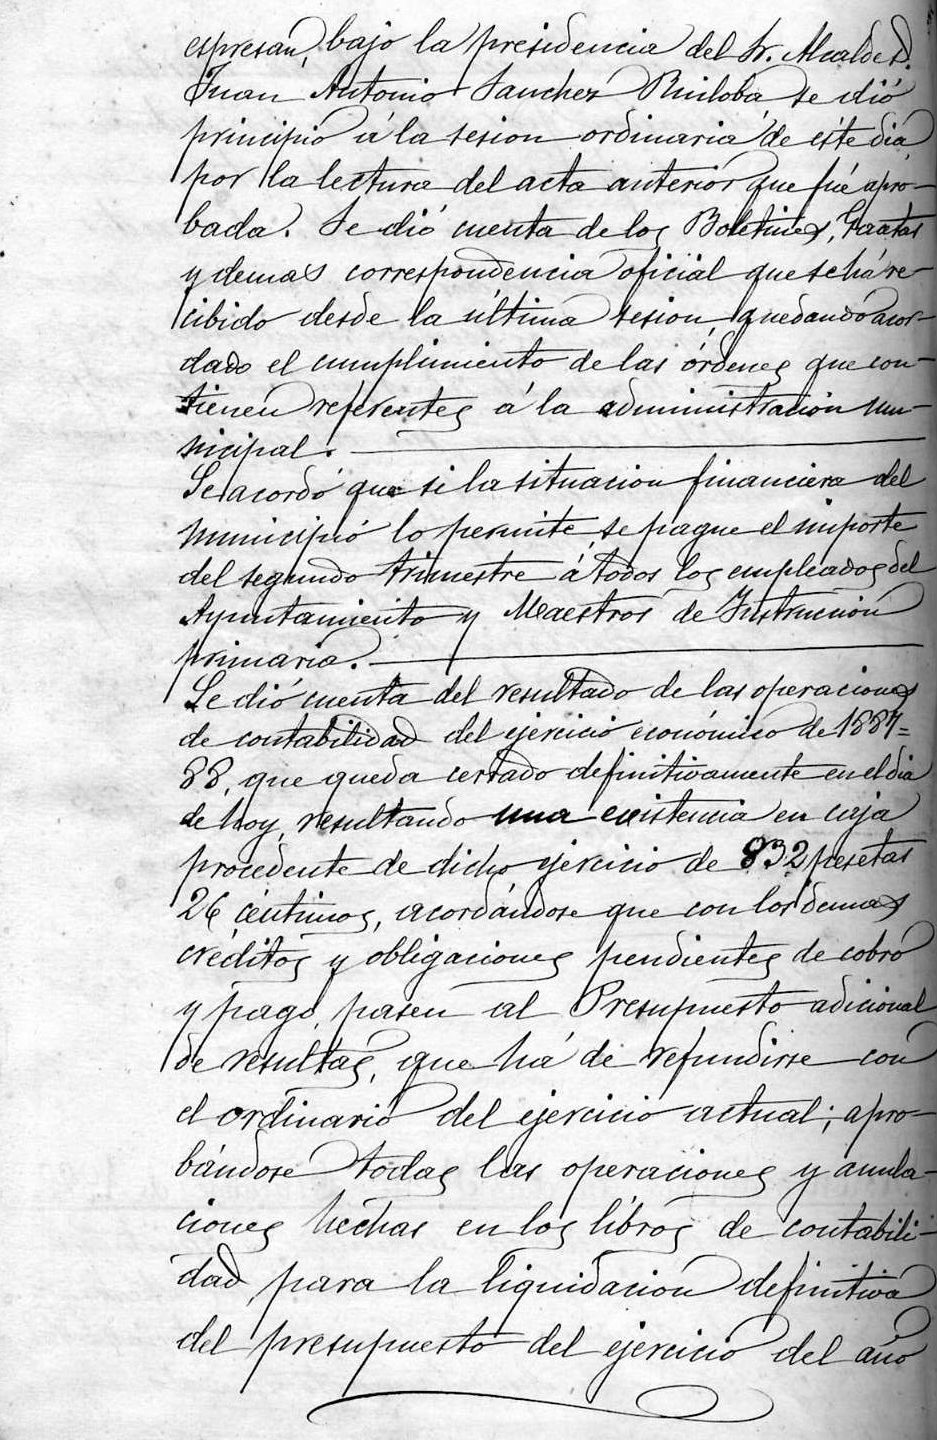 espresan, bajo la presidencia del Sr. Alcalde D.
Juan Antonio Sanchez Ruiloba, se dió
principio á la sesion ordinaria de éste dia
por la lectura del acta anterior que fué apro-
bada. Se dió cuenta de los Boletines, Gacetas
y demas correspondencia oficial que se há re-
cibido desde la última sesion, quedando acor-
dado el cumplimiento de las órdenes que con-
tienen referentes á la administracion mu-
nicipal.
Se acordó que si la situacion financiera del
municipio lo permite se pague el importe
del segundo trimestre á todos los empleados del
Ayuntamiento y Maestros de Instruccion
primaria.
Se dió cuenta del resultado de las operaciones
de contabilidad del ejercicio económico de 1887=
88, que queda cerrado definitivamente en el dia
de hoy, resultando una existencia en caja
procedente de dicho ejercicio de 832 pesetas
26 céntimos, acordándose que con los demas
créditos y obligaciones pendientes de cobro
y pago, pasen al Presupuesto adicional
de resultas, que há de refundirse con
el ordinario del ejercicio actual; apro-
bándose todas las operaciones y anula-
ciones hechas en los libros de contabili-
dad para la liquidacion definitiva
del presupuesto del ejercicio del año